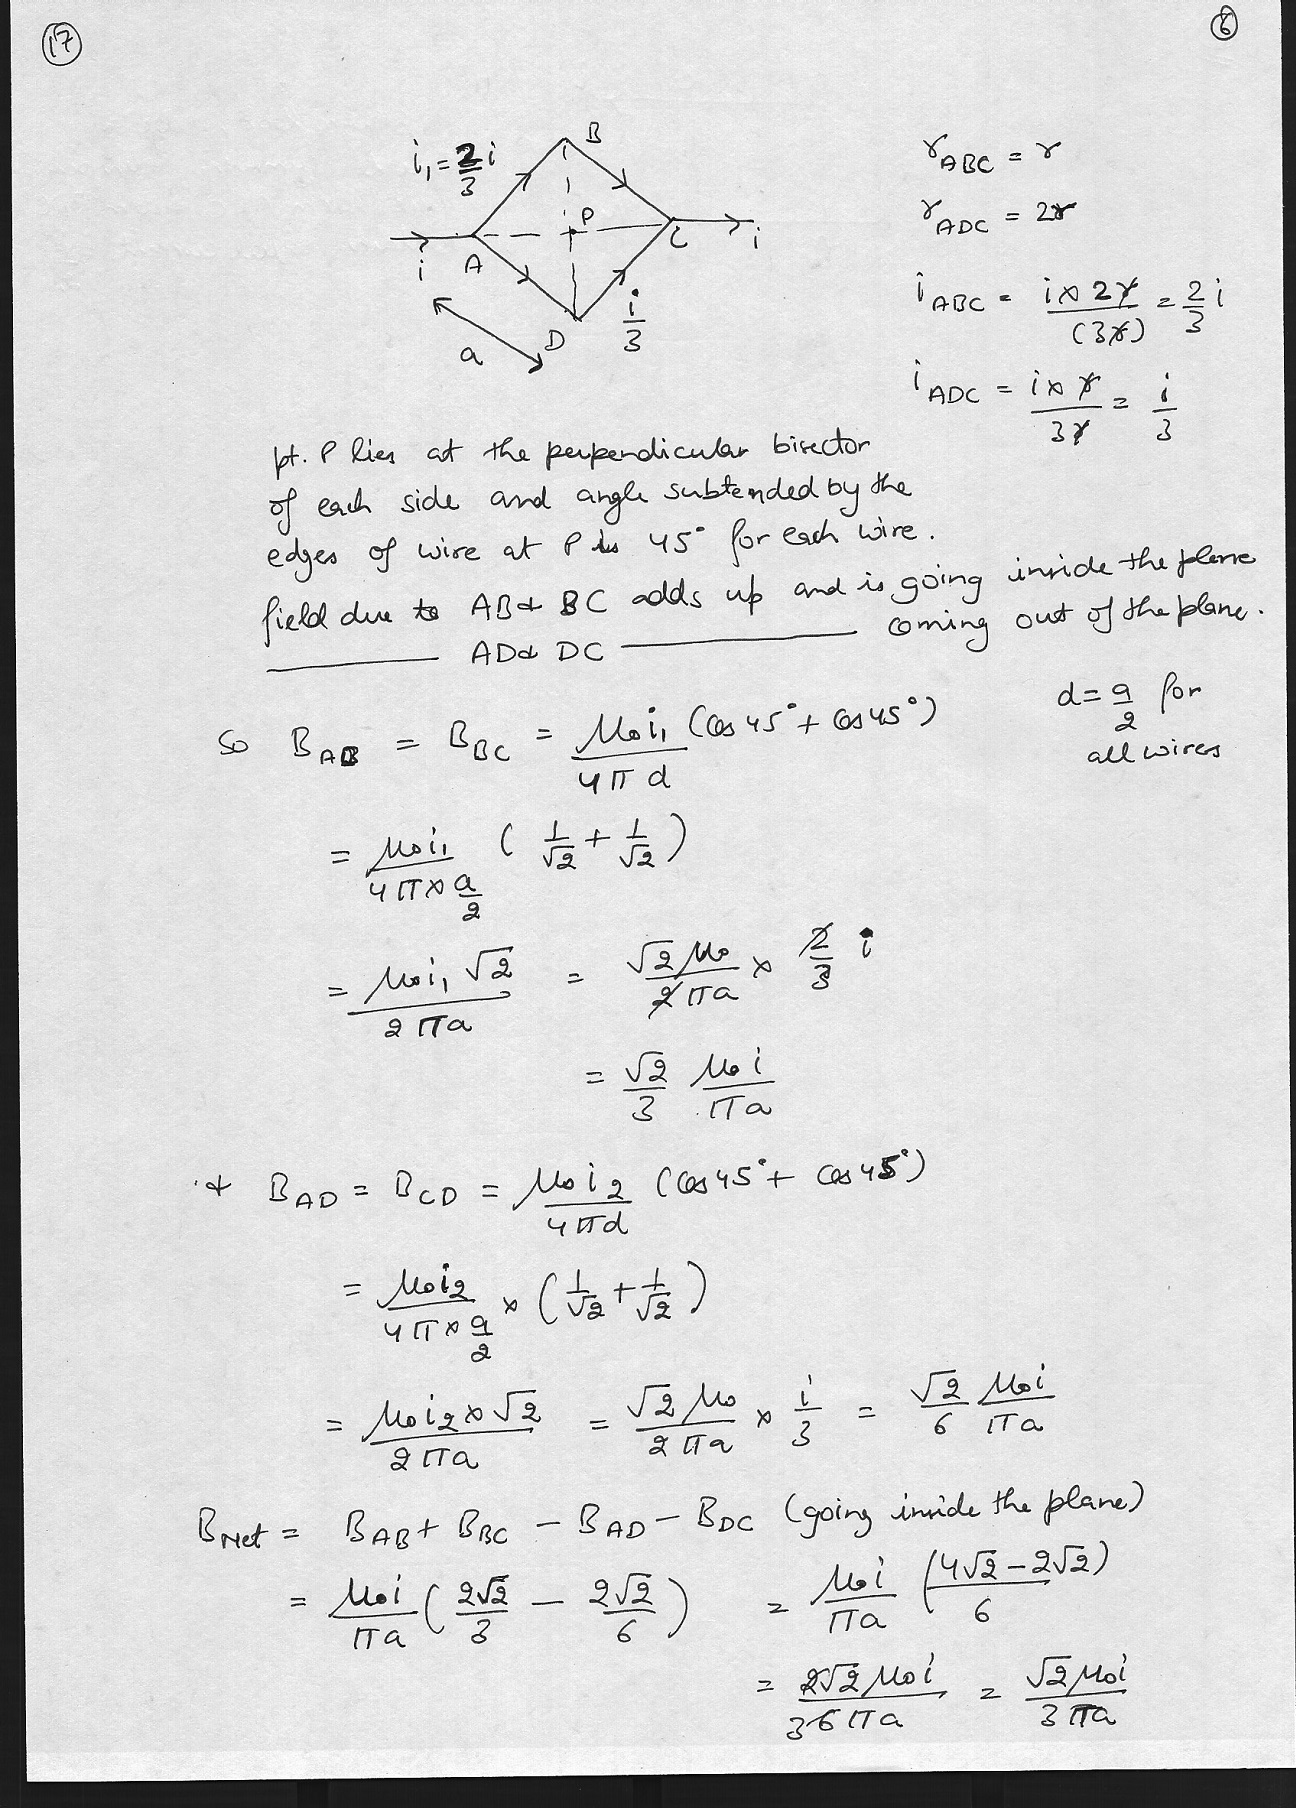 17
6
B
i₁ = 2/3 i
P
A
C
i
i
D
i/3
a
r_ABC = r
r_ADC = 2r
i_ABC = i × 2r / (3r) = 2/3 i
i_ADC = i × r / 3r = i/3
pt. P lies at the perpendicular bisector
of each side and angle subtended by the
edges of wire at P is 45° for each wire.
field due to AB & BC adds up and is going inside the plane
———— AD & DC ———— coming out of the plane.
d = a/2 for
all wires
So B_AB = B_BC = μ₀i₁ / 4πd (cos 45° + cos 45°)
= μ₀i₁ / 4π × a/2 ( 1/√2 + 1/√2 )
= μ₀i₁ √2 / 2πa = √2 μ₀ / 2πa × 2/3 i
= √2/3 μ₀i / πa
& B_AD = B_CD = μ₀i₂ / 4πd (cos 45° + cos 45°)
= μ₀i₂ / 4π × a/2 × ( 1/√2 + 1/√2 )
= μ₀i₂ × √2 / 2πa = √2 μ₀ / 2πa × i/3 = √2/6 μ₀i / πa
B_Net = B_AB + B_BC − B_AD − B_DC (going inside the plane)
= μ₀i / πa ( 2√2/3 − 2√2/6 ) = μ₀i / πa (4√2 − 2√2) / 6
= 2√2 μ₀i / 3 6πa = √2 μ₀i / 3πa